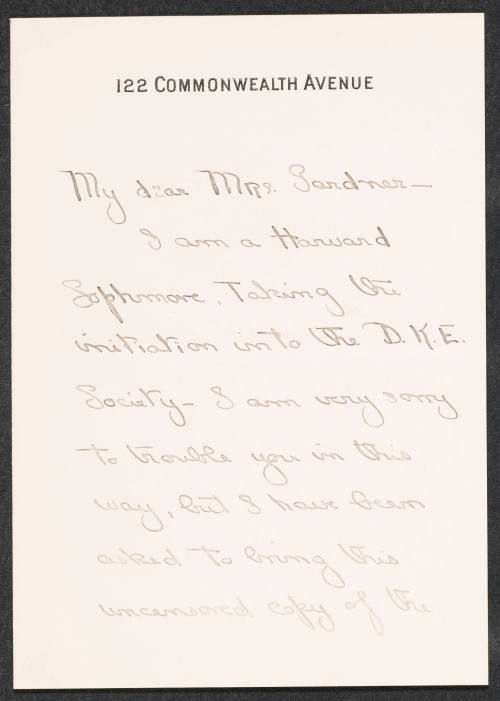 122 COMMONWEALTH AVENUE
My dear Mrs. Gardner—
I am a Harvard
Sophmore, Taking the
initiation into the D.K.E.
Society— I am very sorry
to trouble you in this
way, but I have been
asked to bring this
uncensored copy of the